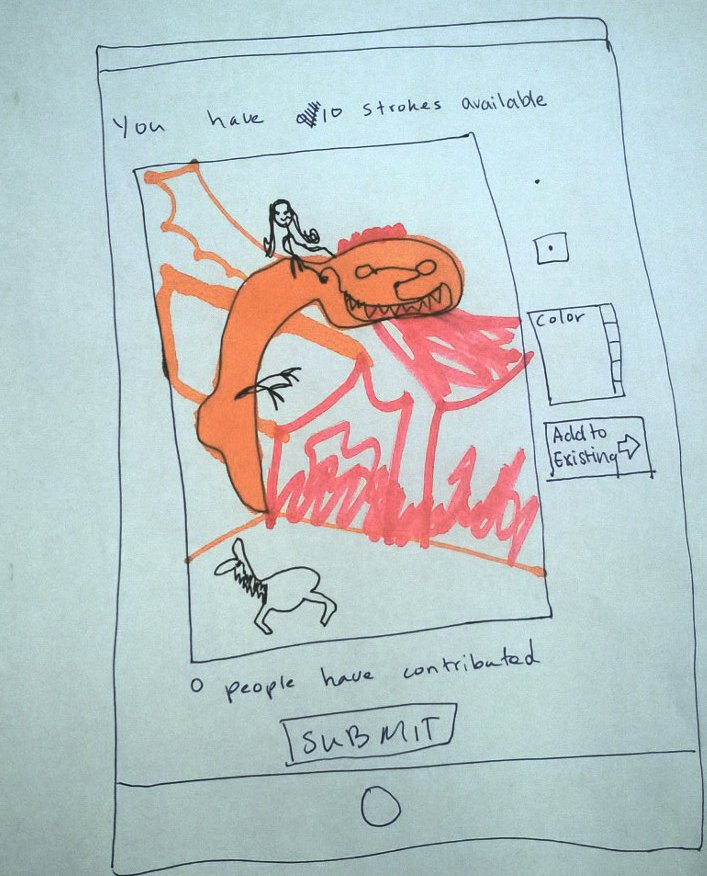 You have 10 strokes available
Color
Add to
Existing
0 people have contributed
SUBMIT